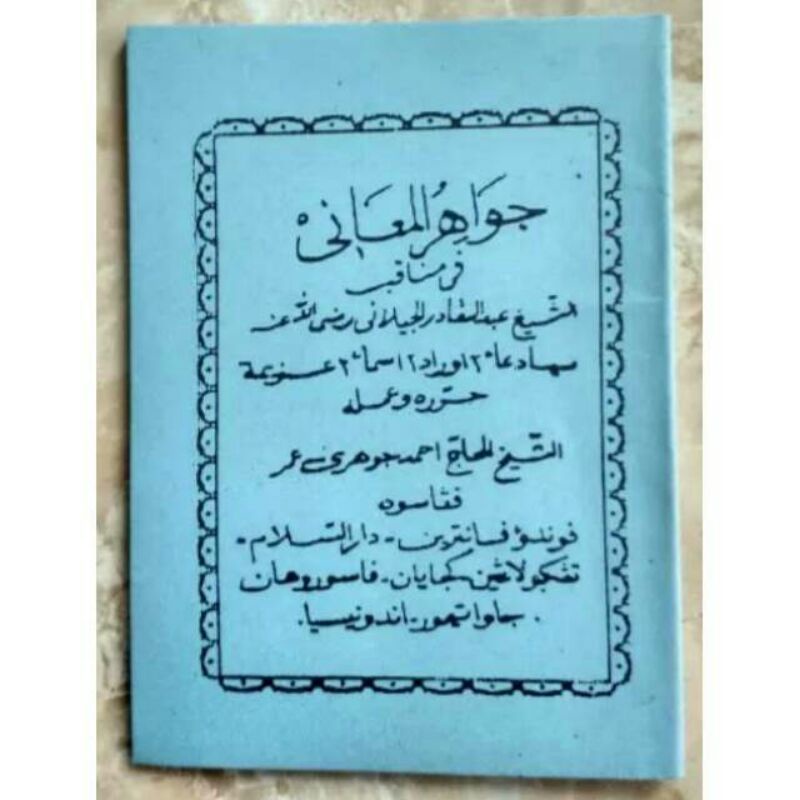 جَوَاهِرُ المَعَانِى
فى مناقب
الشّيخ عبدالقادر الجيلانى رضى الله عنه
دعاء٢ اوراد٢ اسماء٢ عظيمة
حرّره وعمله
الشّيخ الحاجّ احمد جوهرى عمر
ڤڠاسوه
ڤوندؤ ڤسانترين - دار السّلام -
تڠكولاڠين كجايان - ڤاسوروهان
. جاوا تيمور - اندونيسيا .